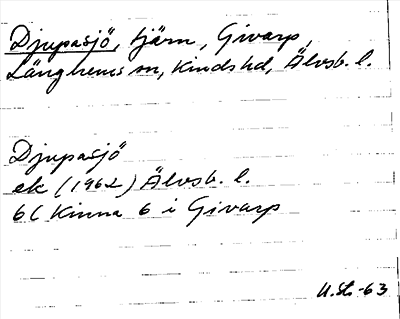 Djupasjö, tjärn, Givarp,
Länghems sn, Kinds hd, Älvsb. l.
Djupasjö
ek (1962) Älvsb. l.
6C Kinna 6 i Givarp
U.St. -63